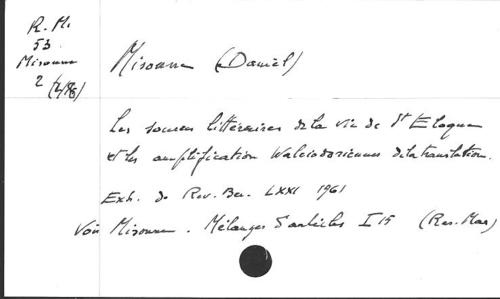 R. M.
53
Misonne
2 (4/76)
Misonne (Daniel)
Les sources littéraires de la vie de St Eloque
et les amplification Walciodoriennes de la translation.
Extr. de Rev. Ben. LXXI 1961
Voir Misonne. Mélanges d'articles I 15 (Res. Mar)